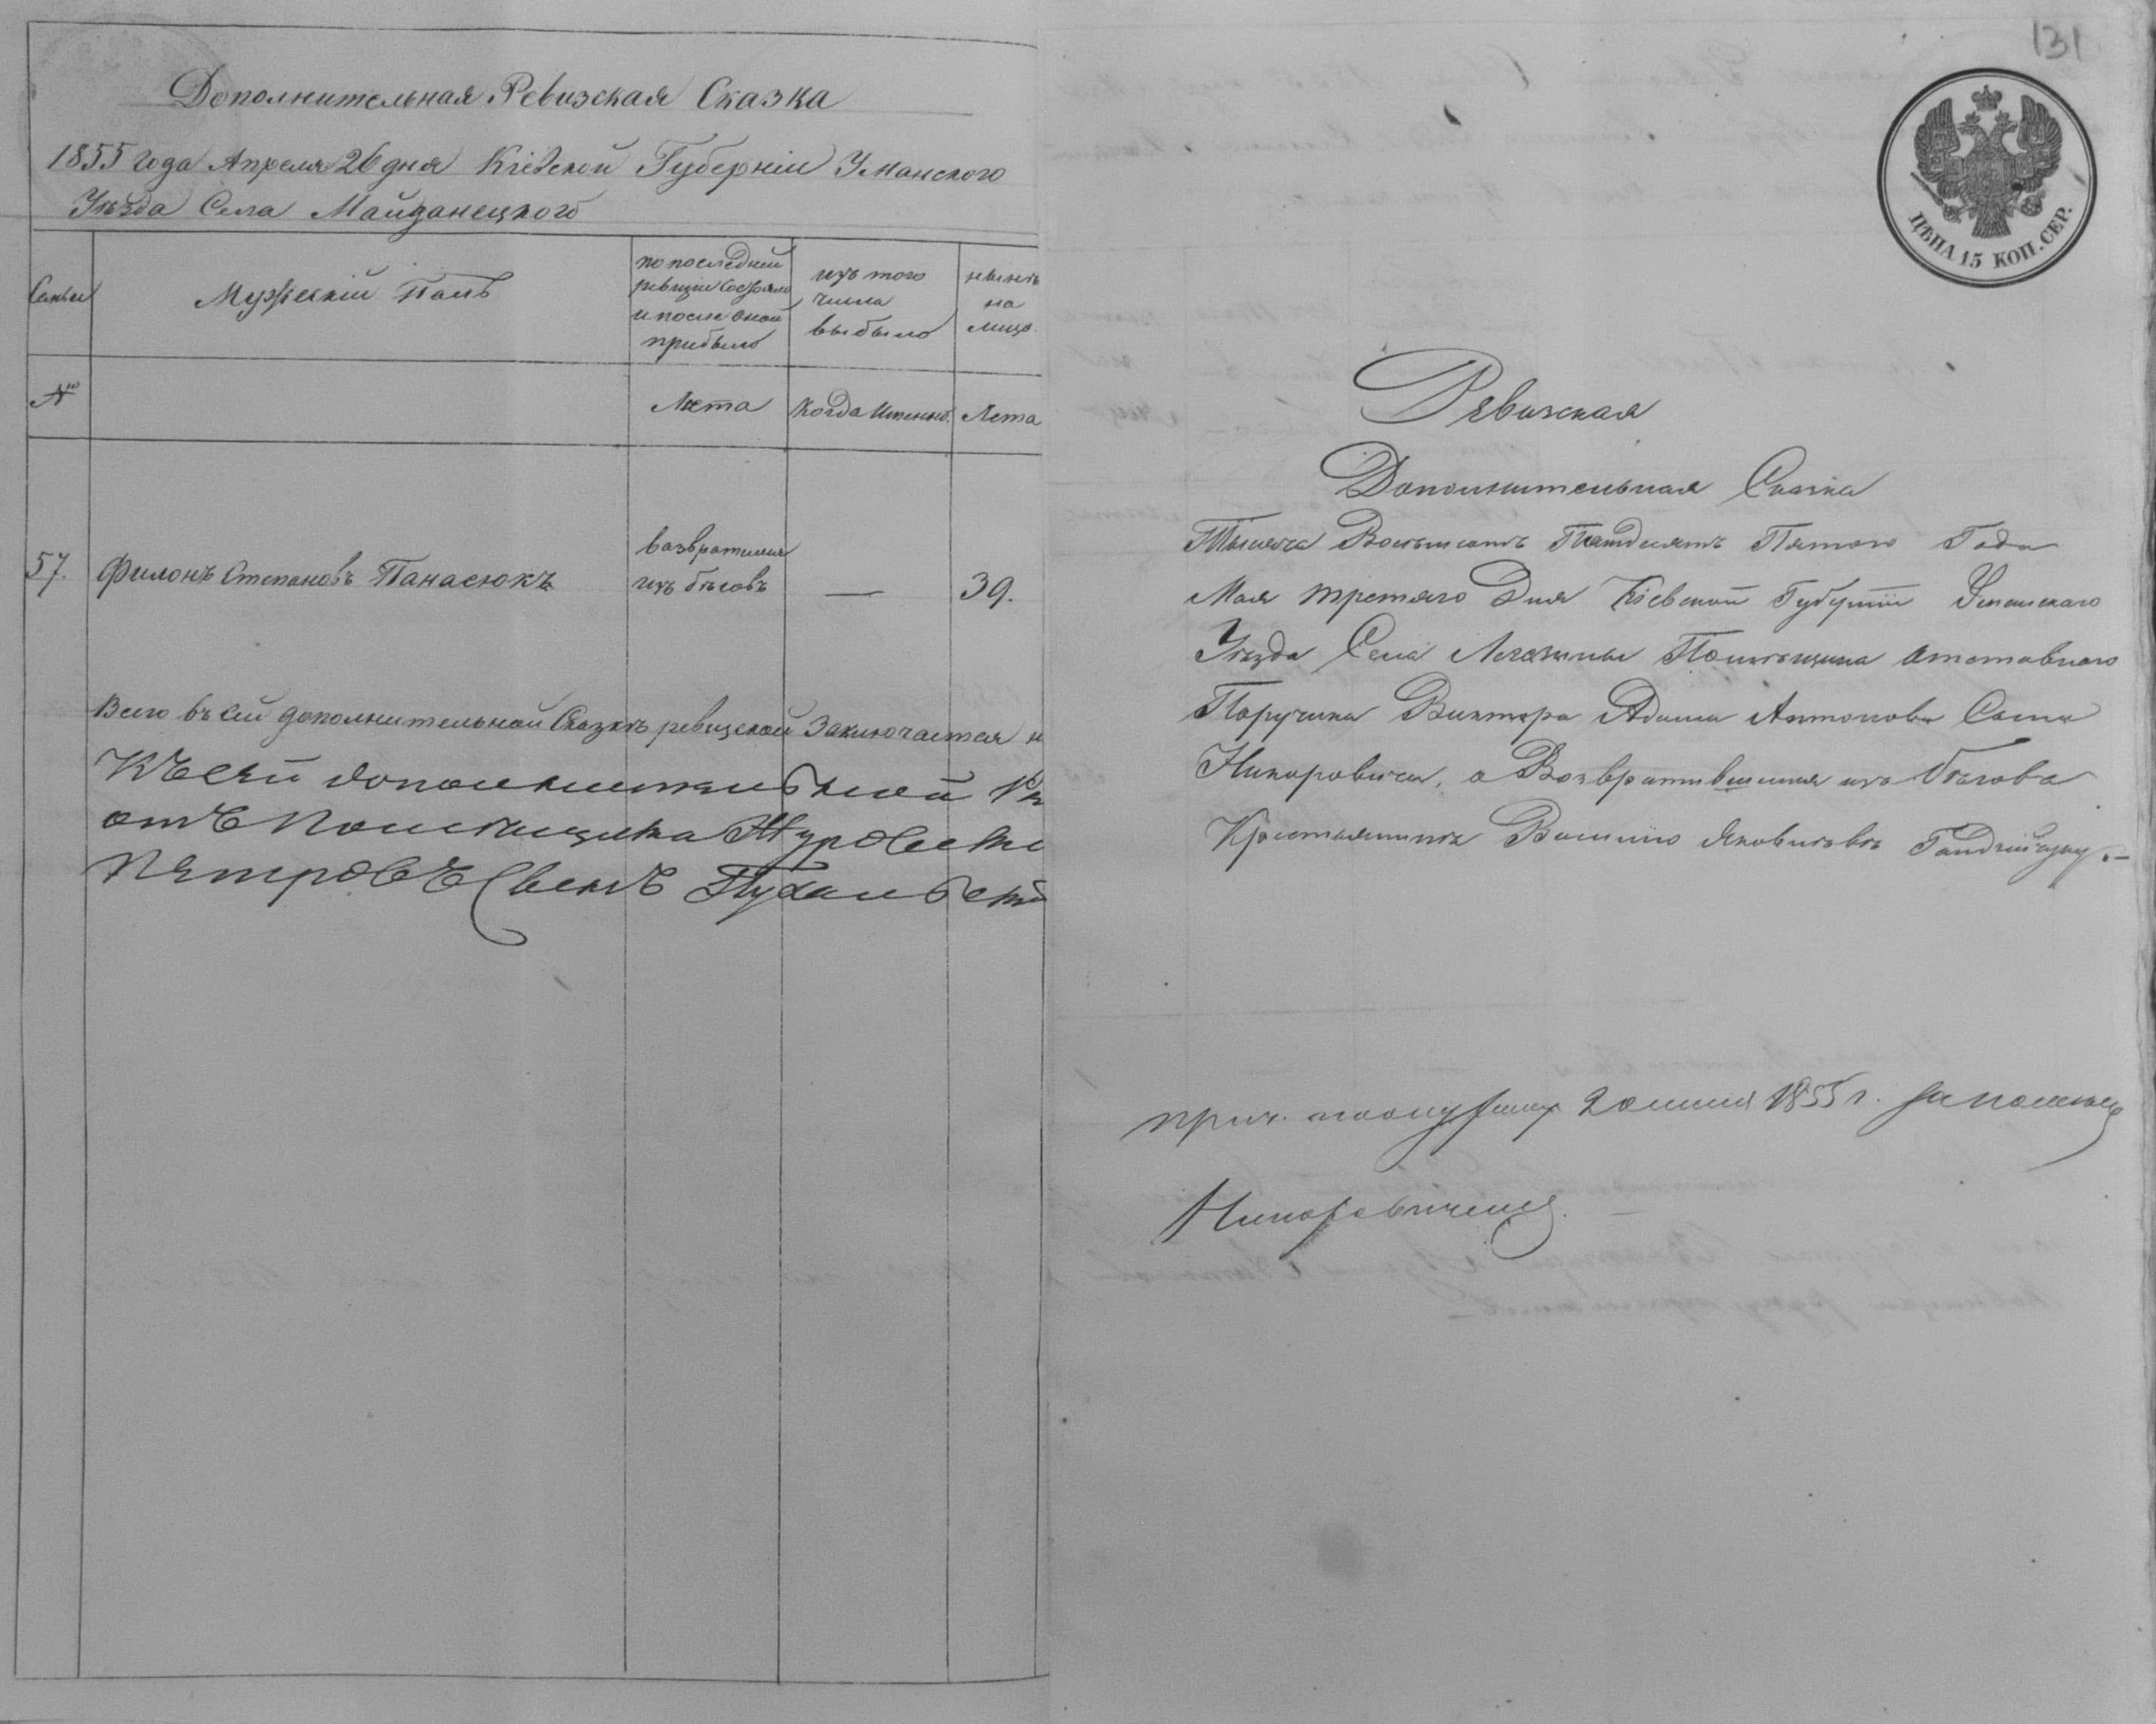 Дополнительная Ревизская Сказка
1855 года Апреля 26 дня Кіевской Губерніи Уманского
Уѣзда Села Майданецкого
Семьи
Мужескій Полъ
по последней
ревизіи состояло
и после оной
прибыло
изъ того
числа
выбыло
нынѣ
на
лицо
№
Лета
Когда именно.
Лета
57.
Филонъ Степановъ Панасюкъ
возвратился
изъ бѣговъ
—
39.
Всего въ сей дополнительной Сказкѣ ревизской Заключается
Къ сей дополнительной
отъ помѣщика
Петровъ Сынъ
131
ЦѢНА 15 КОП. СЕР.
Ревизская
Дополнительная Сказка
Тысяча Восемьсотъ Пятдесятъ Пятого Года
Мая третяго Дня Кіевской Губерніи Уманскаго
Уѣзда Села Помѣщика отставного
Поручика Виктора Адама Антонова Сына
о Возвратившимся изъ бѣгова
Крестьянинѣ
1855 г.